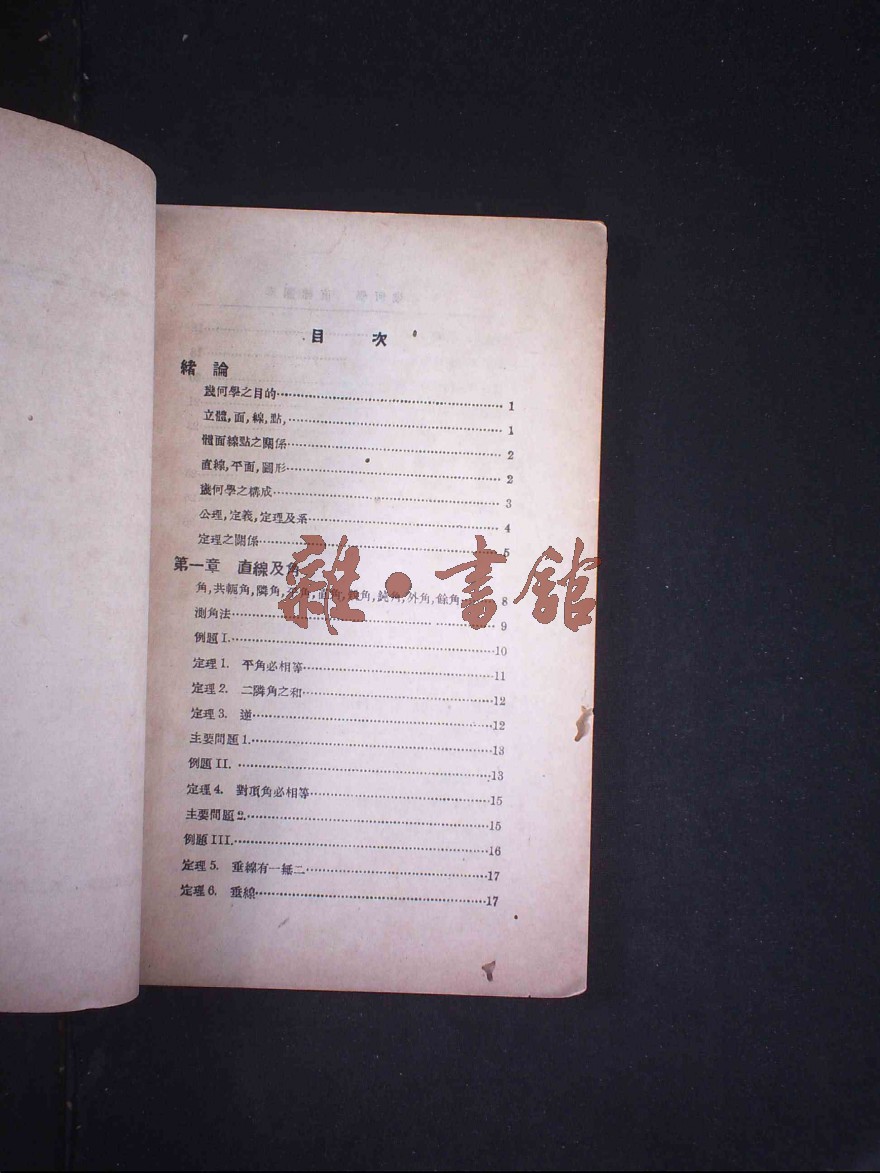 目 次
緒 論
幾何學之目的 1
立體,面,線,點, 1
體面線點之關係 2
直線,平面,圓形 2
幾何學之構成 3
公理,定義,定理及系 4
定理之關係 5
第一章 直線及角
角,共軛角,隣角,平角,直角,銳角,鈍角,外角,餘角 8
測角法 9
例題 I. 10
定理 1. 平角必相等 11
定理 2. 二隣角之和 12
定理 3. 逆 12
主要問題 1. 13
例題 II. 13
定理 4. 對頂角必相等 15
主要問題 2. 15
例題 III. 16
定理 5. 垂線有一無二 17
定理 6. 垂線 17
雜·書館